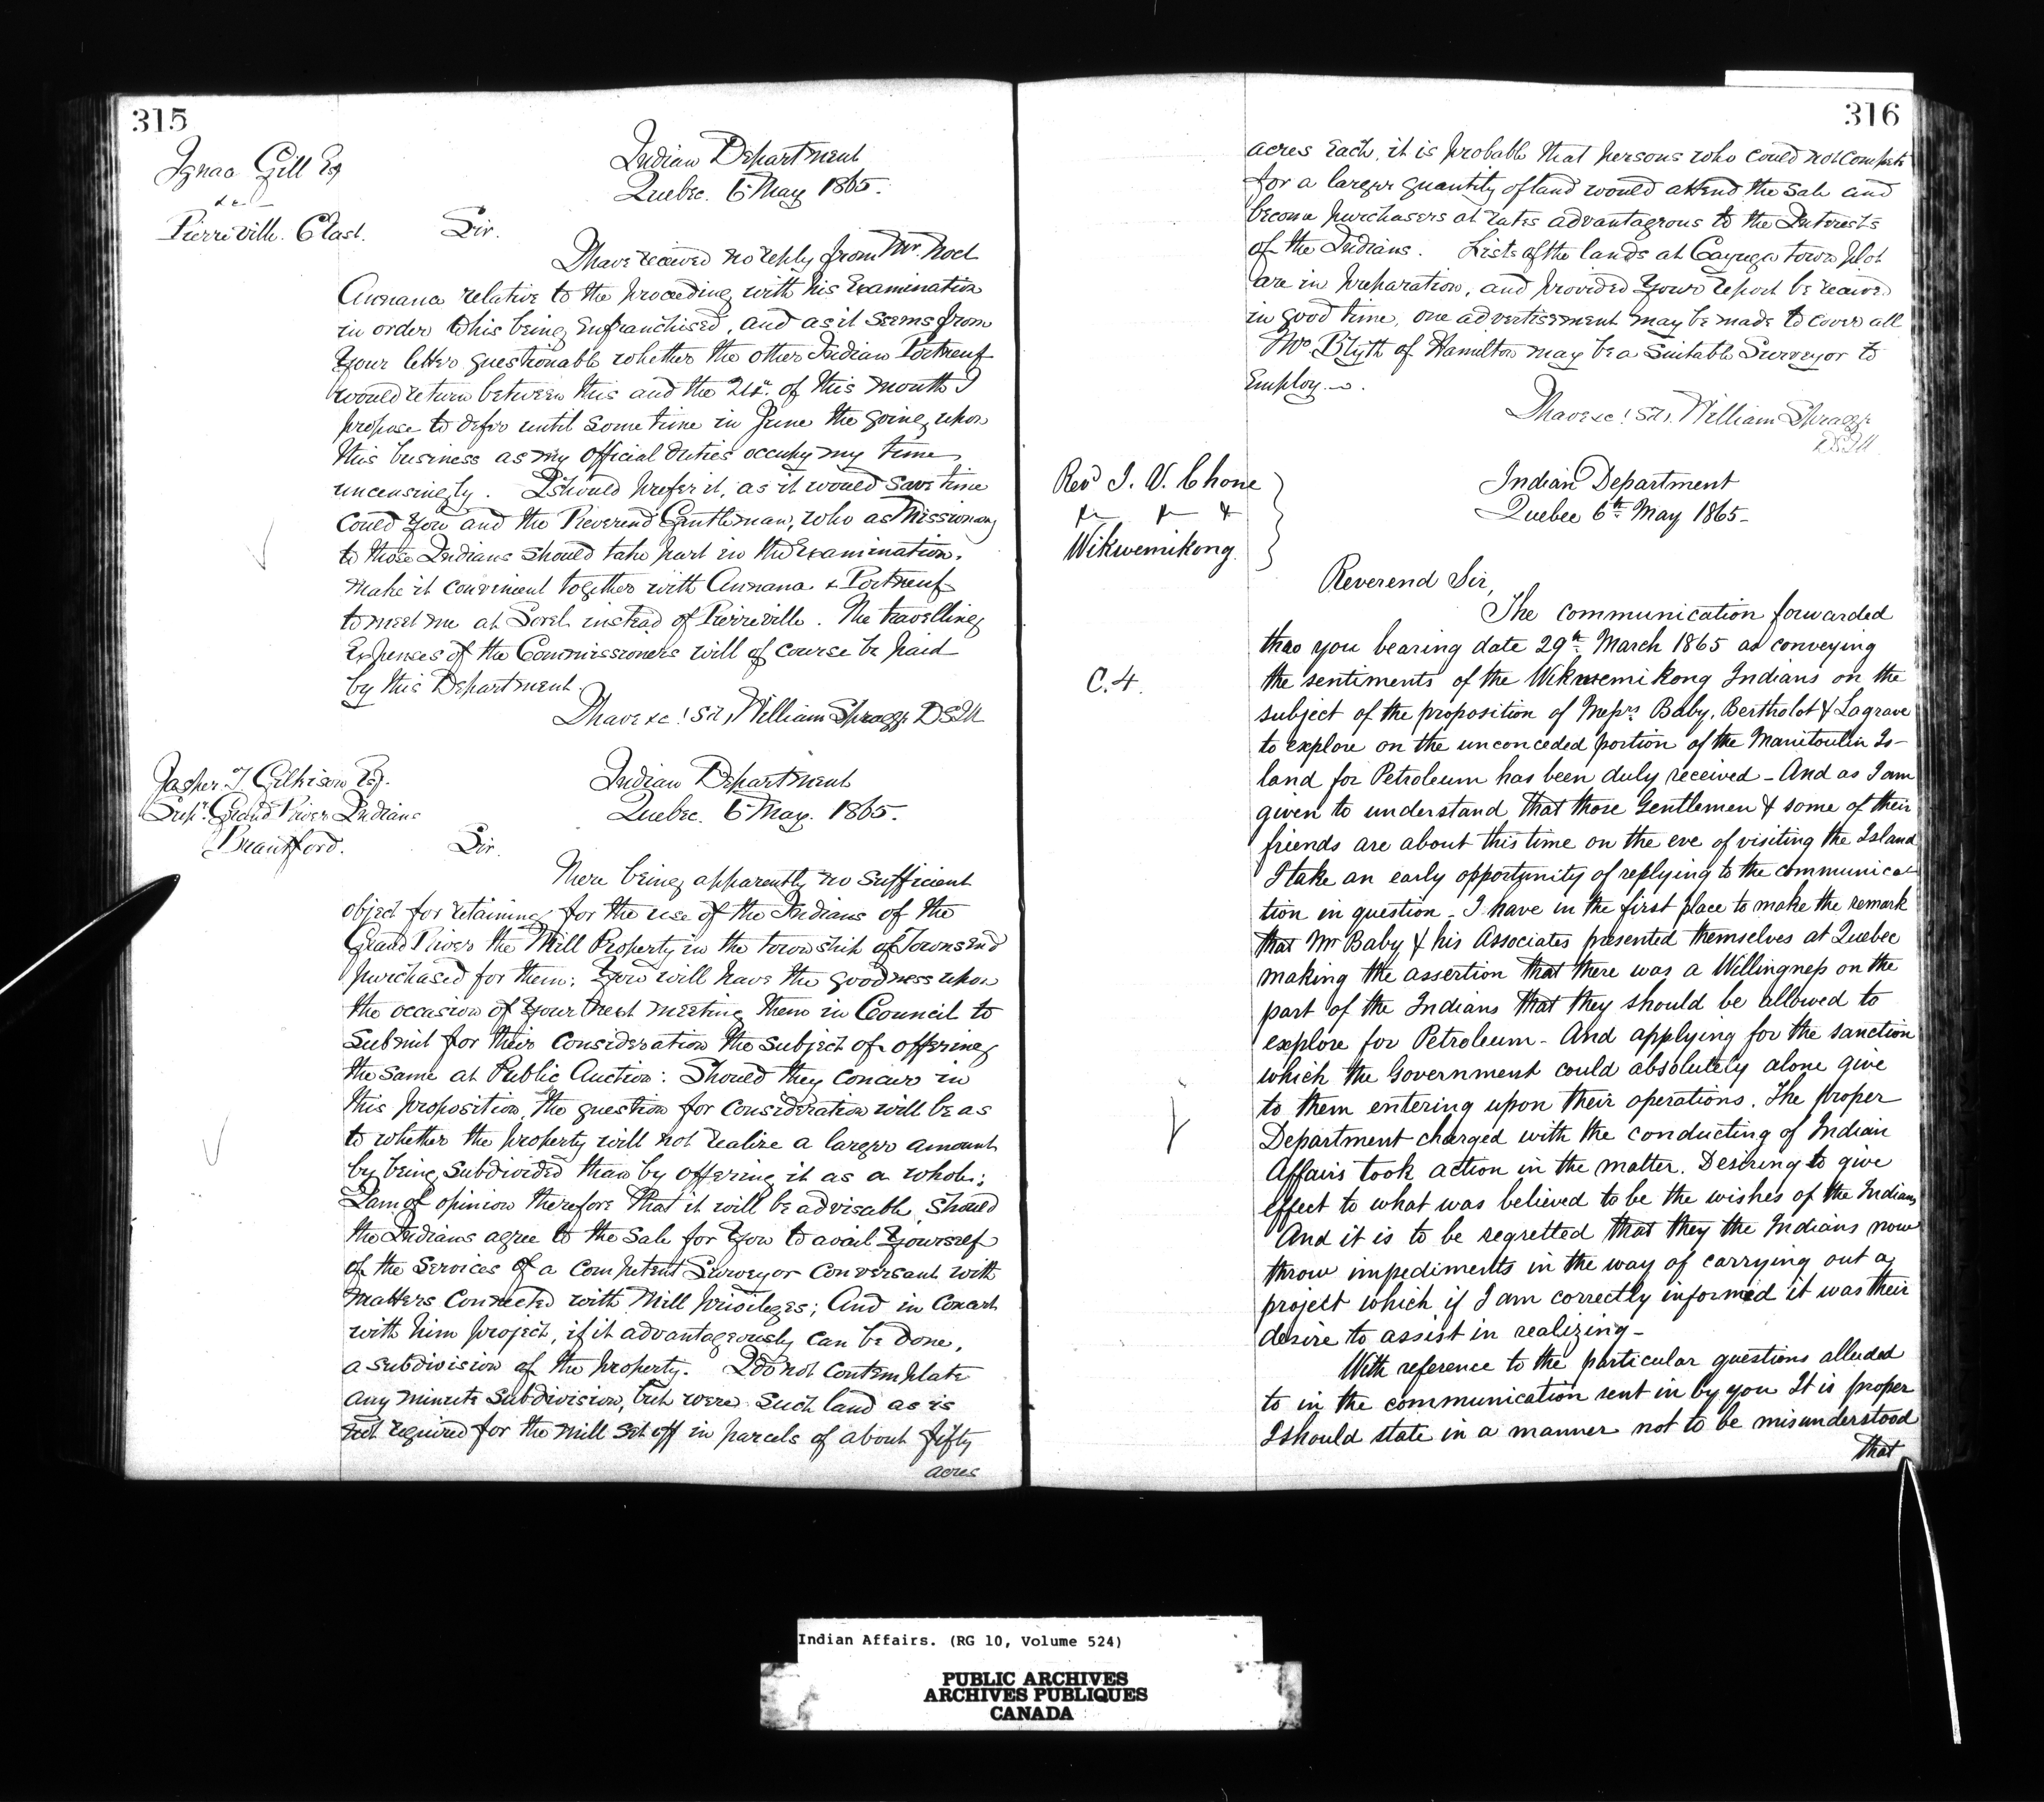 315
Ignac Gill Esq
&c
Pierreville. C East.
Indian Department
Quebec. 6 May 1865.
Sir.
I have received no reply from Mr. Noel
Annance relative to the proceeding with his Examination
in order to his being Enfranchised, and as it seems from
Your letter questionable whether the other Indian Portneuf
would return between this and the 24th. of this month I
propose to defer until some time in June the going upon
this business as my official duties occupy my time
unceasingly. I should prefer it, as it would save time
could You and the Reverend Gentleman, who as Missionary
to those Indians should take part in the Examination.
make it convenient together with Annance & Portneuf
to meet me at Sorel instead of Pierreville. The travelling
Expenses of the Commissioners will of course be paid
by this Department.
I have &c! Sd, William Spragge DSIA
Jasper T Gilkison Esq.
Supt. Grand River Indians
Brantford.
Indian Department
Quebec. 6 May. 1865.
Sir.
There being apparently no sufficient
object for retaining for the use of the Indians of the
Grand River the Mill Property in the township of Townsend
purchased for them; You will have the goodness upon
the occasion of Your next meeting them in Council to
submit for their consideration the subject of offering
the same at Public Auction: Should they concur in
this proposition, the question for consideration will be as
to whether the property will not realize a larger amount
by being subdivided than by offering it as a whole;
I am of opinion therefore that it will be advisable, should
the Indians agree to the sale for You to avail Yourself
of the services of a competent Surveyor conversant with
matters connected with Mill privileges; And in concert
with him project, if it advantageously can be done,
a subdivision of the property. I do not contemplate
any minute subdivision, but were such land as is
not required for the mill set off in parcels of about fifty
acres
316
acres each, it is probable that persons who could not compete
for a larger quantity of land would attend the sale and
become purchasers at rates advantageous to the Interests
of the Indians. Lists of the lands at Cayuga town plot
are in preparation, and provided Your report be received
in good time, one advertisement may be made to cover all
Mr. Blyth of Hamilton may be a suitable Surveyor to
Employ.
I have &c! Sd, William Spragge
DSIA
Revd J. V. Chone
&c &c &
Wikwemikong.
Indian Department
Quebec 6th May 1865-
Reverend Sir,
The communication forwarded
thro you bearing date 29th March 1865 as conveying
C.4.
the sentiments of the Wikwemikong Indians on the
subject of the proposition of Messrs Baby, Bertholot & Lagrave
to explore on the unconceded portion of the Manitoulin Is-
land for Petroleum has been duly received - And as I am
given to understand that those Gentlemen & some of their
friends are about this time on the eve of visiting the Island
I take an early opportunity of replying to the communica-
tion in question - I have in the first place to make the remark
that Mr Baby & his Associates presented themselves at Quebec
making the assertion that there was a Willingness on the
part of the Indians that they should be allowed to
explore for Petroleum - And applying for the sanction
which the Government could absolutely alone give
to them entering upon their operations. The proper
Department charged with the conducting of Indian
Affairs took action in the matter. Desiring to give
effect to what was believed to be the wishes of the Indians
And it is to be regretted that they the Indians now
throw impediments in the way of carrying out a
project which if I am correctly informed it was their
desire to assist in realizing -
With reference to the particular questions alluded
to in the communication sent in by you It is proper
I should state in a manner not to be misunderstood
that
Indian Affairs. (RG 10, Volume 524)
PUBLIC ARCHIVES
ARCHIVES PUBLIQUES
CANADA